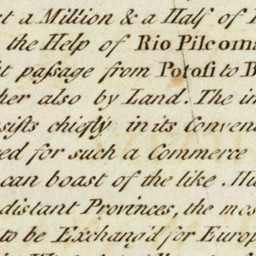 t a Million & a Half of
the Help of Rio Pilcoma
t paſsage from Potoſi to B
her also by Land. The in
sists chiefly in its Conven
ed for such a Commerce
can boast of the like. Mu
distant Provinces, the mos
to be Exchang'd for Europ